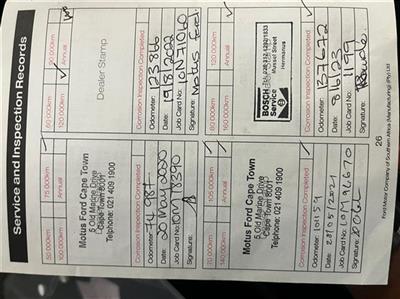 Service and Inspection Records
50 000km
75 000km
100 000km
Annual
Motus Ford Cape Town
5 Old Marine Drive
Cape Town 8001
Telphone: 021 409 1900
Corrosion Inspection Completed
Odometer:
Date: 20 May 2020
Job Card No:
Signature:
60 000km
90 000km
120 000km
Annual
Dealer Stamp
Corrosion Inspection Completed
Odometer: 23866
Date: 19/8/2022
Job Card No:
Signature: Motus Ford
70 000km
105 000km
140 000km
Annual
Motus Ford Cape Town
5 Old Marine Drive
Cape Town 8001
Telphone: 021 409 1900
Corrosion Inspection Completed
Odometer: 101159
Date: 28/05/2021
Job Card No: 10M96670
Signature:
80 000km
160 000km
Annual
BOSCH
Service
Mussel Street
Hermanus
Corrosion Inspection Completed
Odometer:
Date: 8/6/23
Job Card No: 1199
Signature:
26
Ford Motor Company of Southern Africa (Manufacturing) (Pty) Ltd